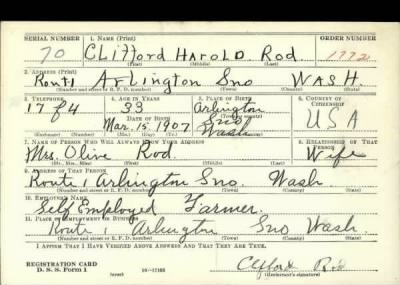 SERIAL NUMBER 1. NAME (Print) ORDER NUMBER
70 CLIFFORD HAROLD Rod.
(First) (Middle) (Last)
2. ADDRESS (Print)
Rout 1 Arlington Sno WASH.
(Number and street or R. F. D. number) (Town) (County) (State)
3. TELEPHONE 4. AGE IN YEARS 5. PLACE OF BIRTH 6. COUNTRY OF CITIZENSHIP
17 F 4 33 Arlington
DATE OF BIRTH Sno USA
Mar. 15, 1907 Wash
(Exchange) (Number) (Mo.) (Day) (Yr.) (State or country)
7. NAME OF PERSON WHO WILL ALWAYS KNOW YOUR ADDRESS 8. RELATIONSHIP OF THAT PERSON
Mrs. Olive Rod. Wife
(Mr., Mrs., Miss) (First) (Middle) (Last)
9. ADDRESS OF THAT PERSON
Route 1 Arlington Sno. Wash.
(Number and street or R. F. D. number) (Town) (County) (State)
10. EMPLOYER'S NAME
Self Employed Farmer.
11. PLACE OF EMPLOYMENT OR BUSINESS
Route 1 Arlington Sno Wash.
(Number and street or R. F. D. number) (Town) (County) (State)
I AFFIRM THAT I HAVE VERIFIED ABOVE ANSWERS AND THAT THEY ARE TRUE.
REGISTRATION CARD
D. S. S. Form 1 (over) Clifford Rod
(Registrant's signature)